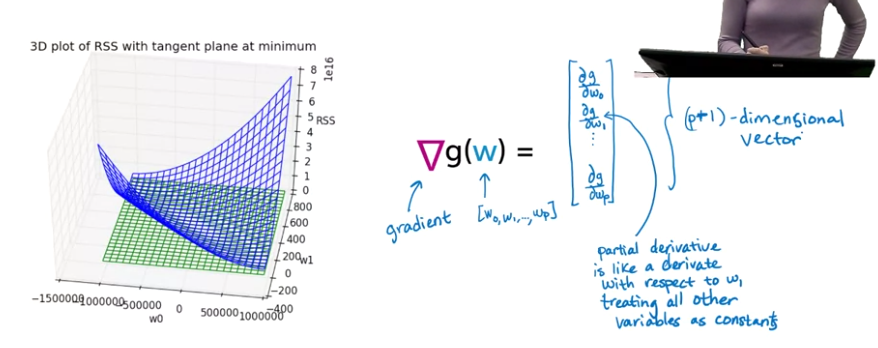 3D plot of RSS with tangent plane at minimum
1e16
8
7
6
5
4
3
2
1
0
RSS
800
600
400
200
0
−200
−400
w1
−1500000
−1000000
−500000
0
500000
1000000
w0
∇g(w) =
gradient
[w₀,w₁,...,wₚ]
∂g/∂w₀
∂g/∂w₁
⋮
∂g/∂wₚ
(p+1)-dimensional
vector
partial derivative
is like a derivate
with respect to w₁
treating all other
variables as constants